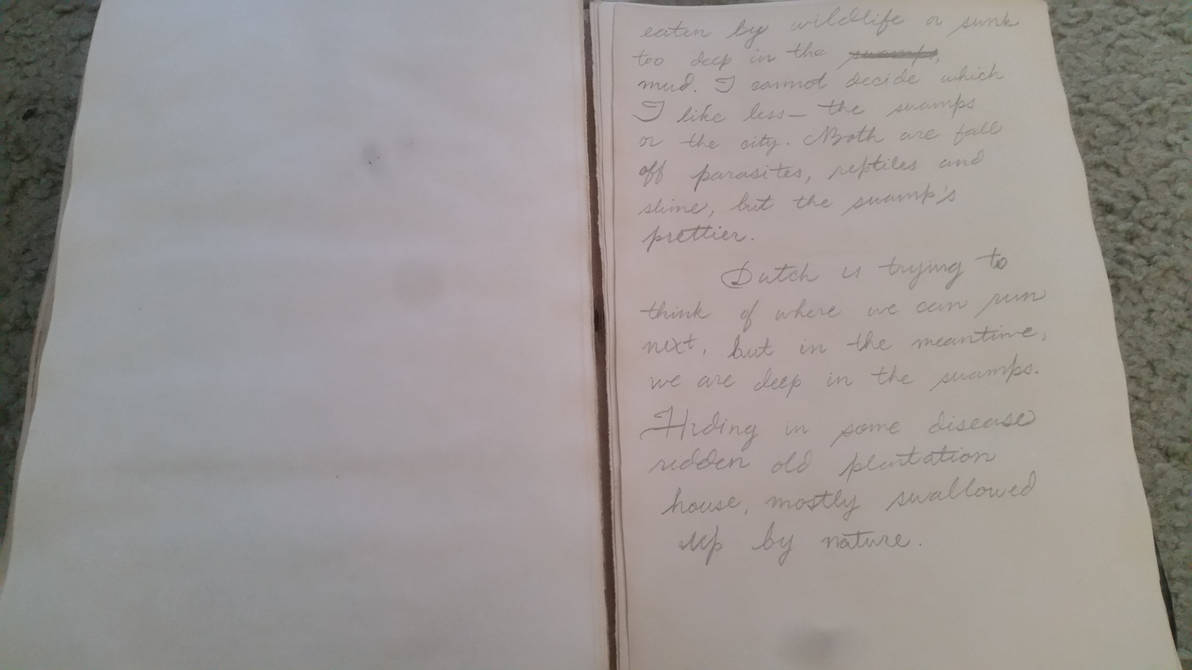 eaten by wildlife or sunk
too deep in the swamps,
mud. I cannot decide which
I like less— the swamps
or the city. Both are full
off parasites, reptiles and
slime, but the swamp's
prettier.
Dutch is trying to
think of where we can run
next, but in the meantime,
we are deep in the swamps.
Hiding in some disease
ridden old plantation
house, mostly swallowed
up by nature.